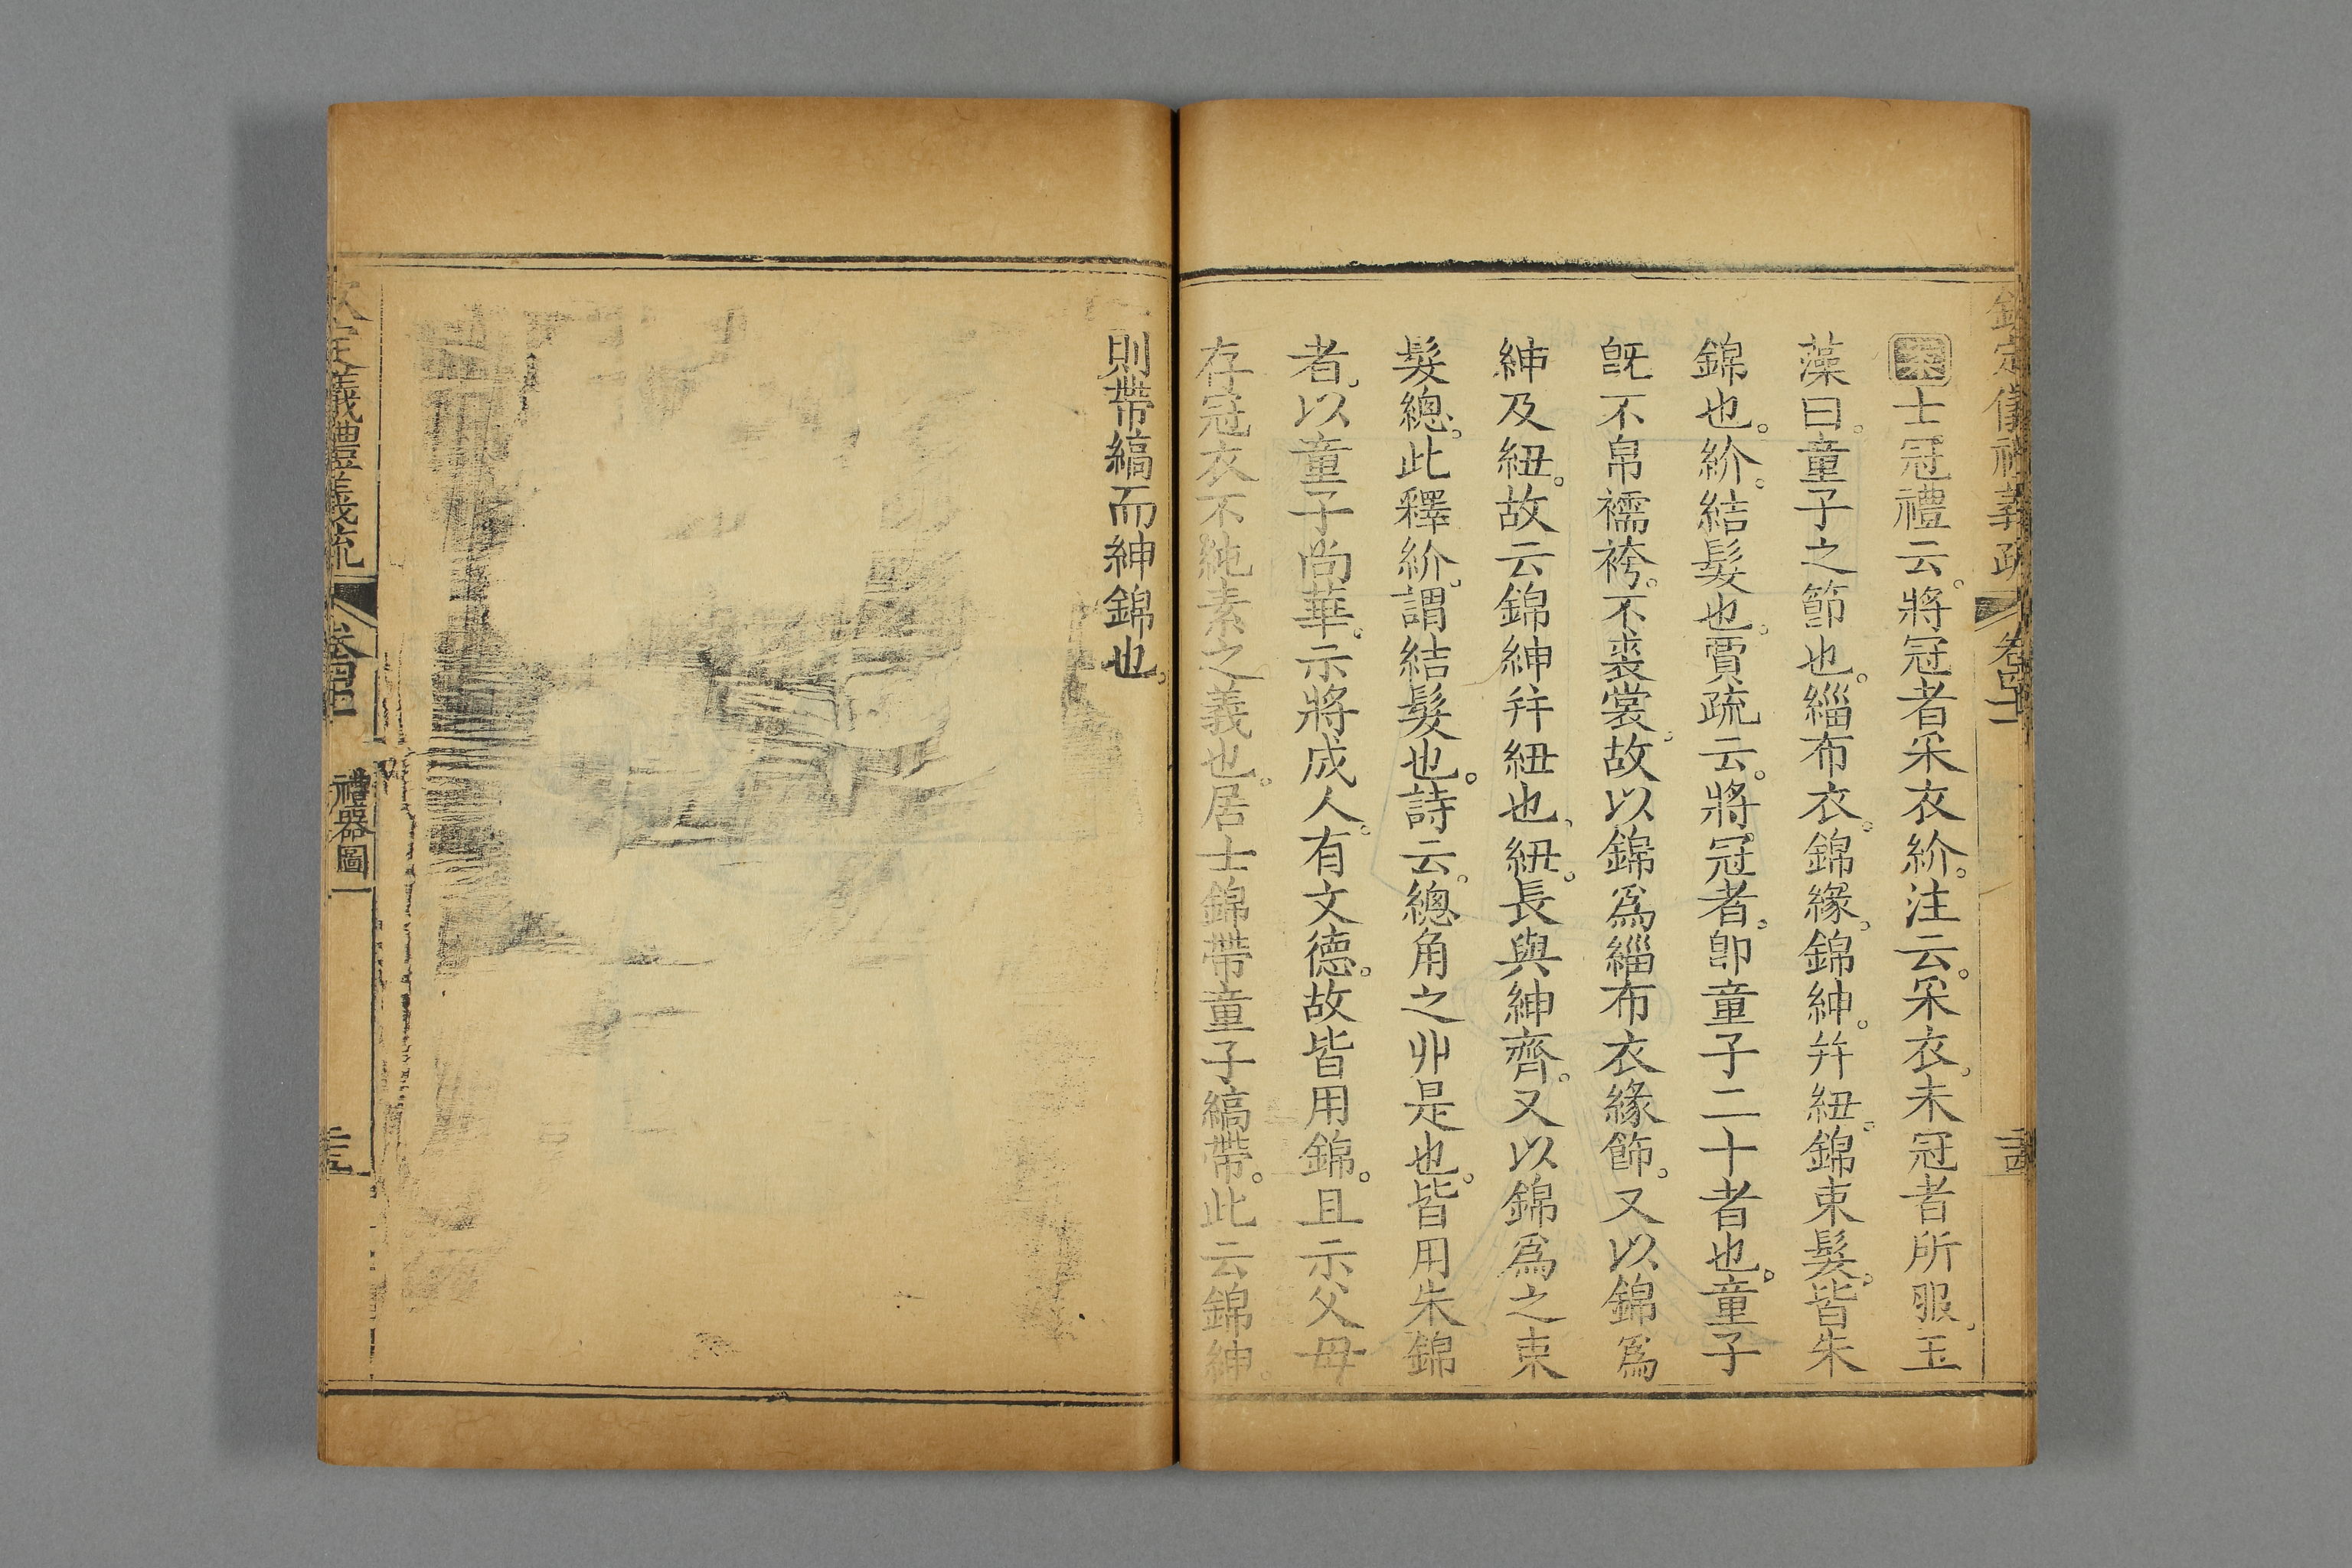 欽定儀禮義疏 卷四十 禮器圖 三十
案士冠禮云。將冠者采衣紒。注云。采衣。未冠者所服。玉
藻曰。童子之節也。緇布衣。錦緣。錦紳。幷紐。錦束髮。皆朱
錦也。紒。結髮也。賈疏云。將冠者。卽童子二十者也。童子
旣不帛襦袴。不裘裳。故以錦爲緇布衣緣飾。又以錦爲
紳及紐。故云錦紳幷紐也。紐。長與紳齊。又以錦爲之束
髮總。此釋紒。謂結髮也。詩云。總角之丱是也。皆用朱錦
者。以童子尚華。示將成人。有文德。故皆用錦。且示父母
存冠衣不純素之義也。居士錦帶童子縞帶。此云錦紳。
則帶縞而紳錦也。